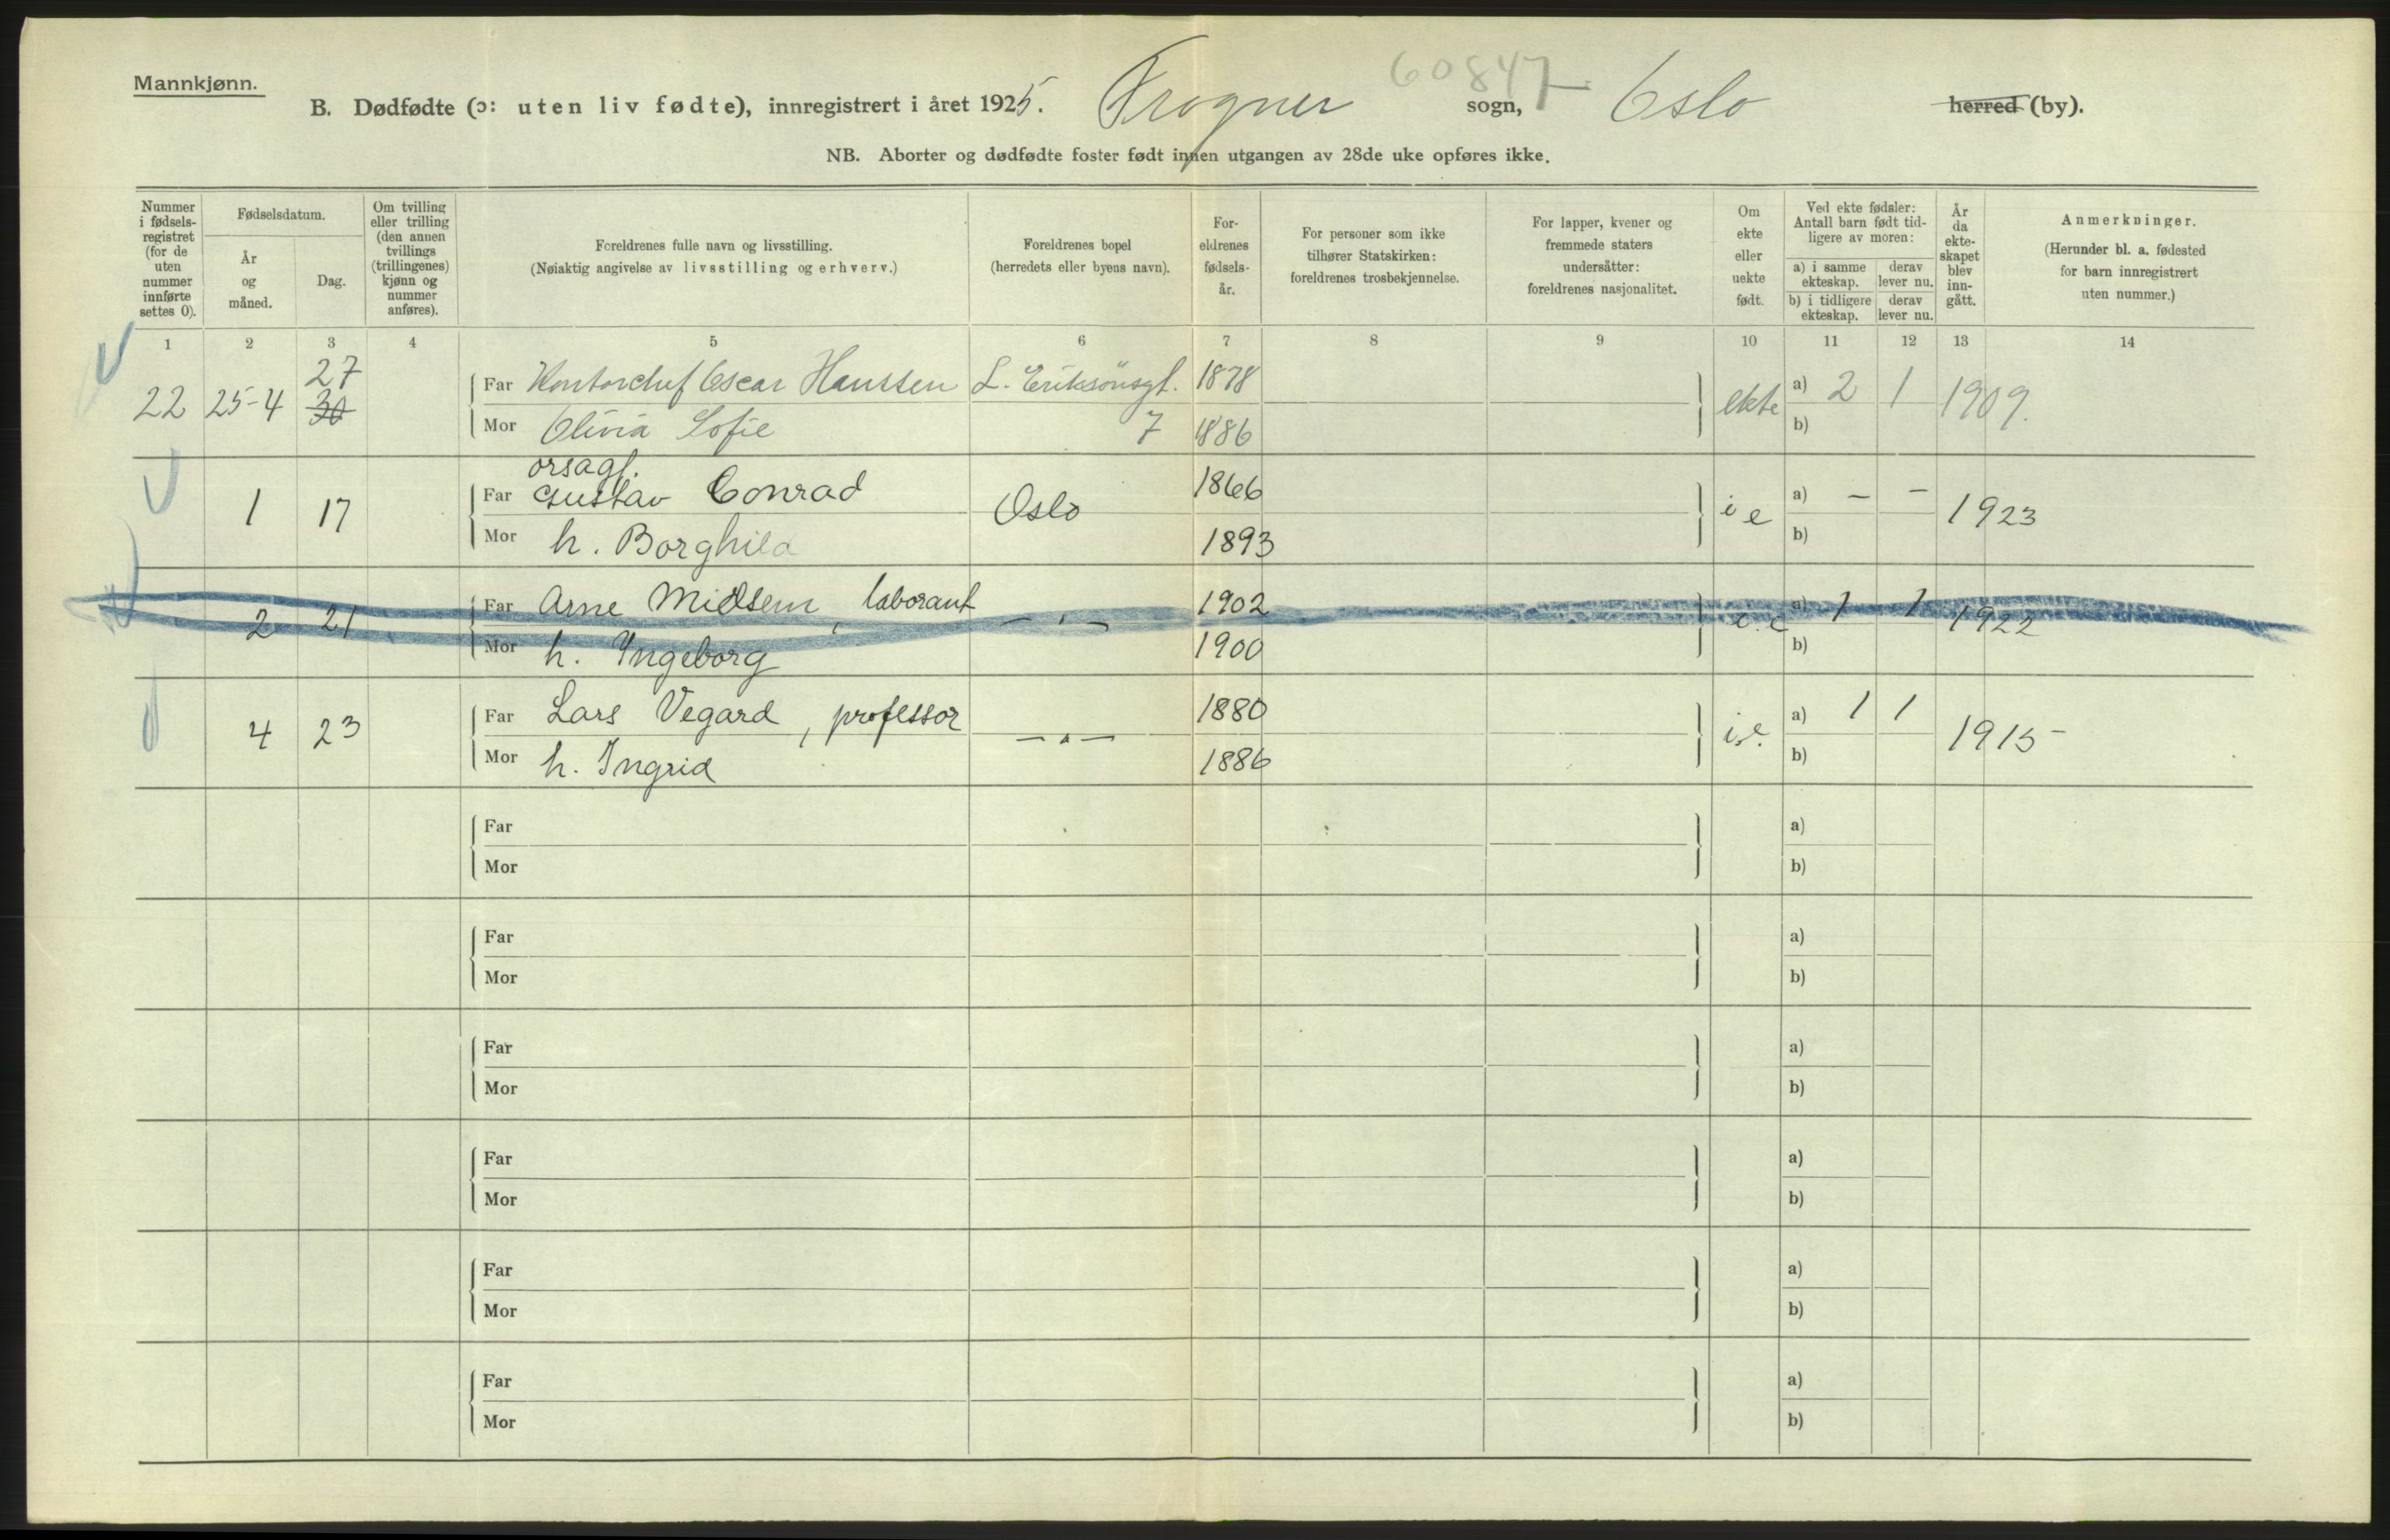 Mannkjønn.
60847
B. Dødfødte (ɔ: uten liv fødte), innregistrert i året 1925. Frogner sogn, Oslo herred (by).
NB. Aborter og dødfødte foster født innen utgangen av 28de uke opføres ikke.
Nummer i fødselsregistret (for de uten nummer innførte settes 0).
Fødselsdatum.
År og måned.
Dag.
Om tvilling eller trilling (den annen tvillings (trillingenes) kjønn og nummer anføres).
Foreldrenes fulle navn og livsstilling.
(Nøiaktig angivelse av livsstilling og erhverv.)
Foreldrenes bopel
(herredets eller byens navn).
Foreldrenes fødselsår.
For personer som ikke tilhører Statskirken: foreldrenes trosbekjennelse.
For lapper, kvener og fremmede staters undersåtter: foreldrenes nasjonalitet.
Om ekte eller uekte født.
Ved ekte fødsler: Antall barn født tidligere av moren:
a) i samme ekteskap. derav lever nu.
b) i tidligere ekteskap. derav lever nu.
År da ekteskapet blev inngått.
Anmerkninger.
(Herunder bl. a. fødested for barn innregistrert uten nummer.)
1 2 3 4 5 6 7 8 9 10 11 12 13 14
27
22 25-4 30 Far Kontorchef Oscar Hanssen L. Eriksönsgt. 1878 ekte a) 2 1 1909.
Mor Olivia Sofie 7 1886 b)
orsagf.
1 17 Far Gustav Conrad Oslo 1866 i e a) – – 1923
Mor h. Borghild 1893 b)
2 21 Far Arne Midsem, laborant — " — 1902 i.e a) 1 1 1922
Mor h. Ingeborg 1900 b)
4 23 Far Lars Vegard, professor — " — 1880 i.e. a) 1 1 1915
Mor h. Ingrid 1886 b)
Far a)
Mor b)
Far a)
Mor b)
Far a)
Mor b)
Far a)
Mor b)
Far a)
Mor b)
Far a)
Mor b)